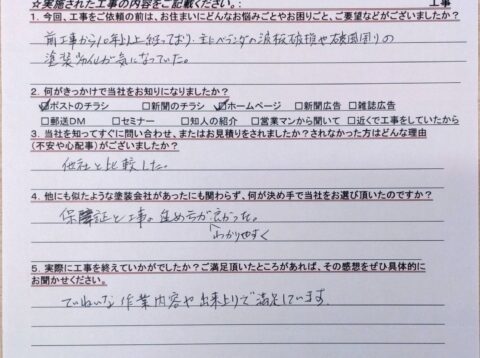 ☆実施された工事の内容をご記載ください。: 工事
1. 今回、工事をご依頼の前は、お住まいにどんなお悩みごとやお困りごと、ご要望などがございましたか?
前工事から10年以上経っており、主にベランダの波板破損や破風周りの
塗装劣化が気になっていた。
2. 何がきっかけで当社をお知りになりましたか?
☑ポストのチラシ □新聞のチラシ ☑ホームページ □新聞広告 □雑誌広告
□郵送DM □セミナー □知人の紹介 □営業マンから聞いて □近くで工事をしていたから
3. 当社を知ってすぐに問い合わせ、またはお見積りをされましたか?されなかった方はどんな理由
(不安や心配事)がございましたか?
他社と比較した。
4. 他にも似たような塗装会社があったにも関わらず、何が決め手で当社をお選び頂いたのですか?
保障証と工事の進め方が良かった。
わかりやすく
5. 実際に工事を終えていかがでしたか?ご満足頂いたところがあれば、その感想をぜひ具体的に
お聞かせください。
ていねいな作業内容や出来上りで満足しています。